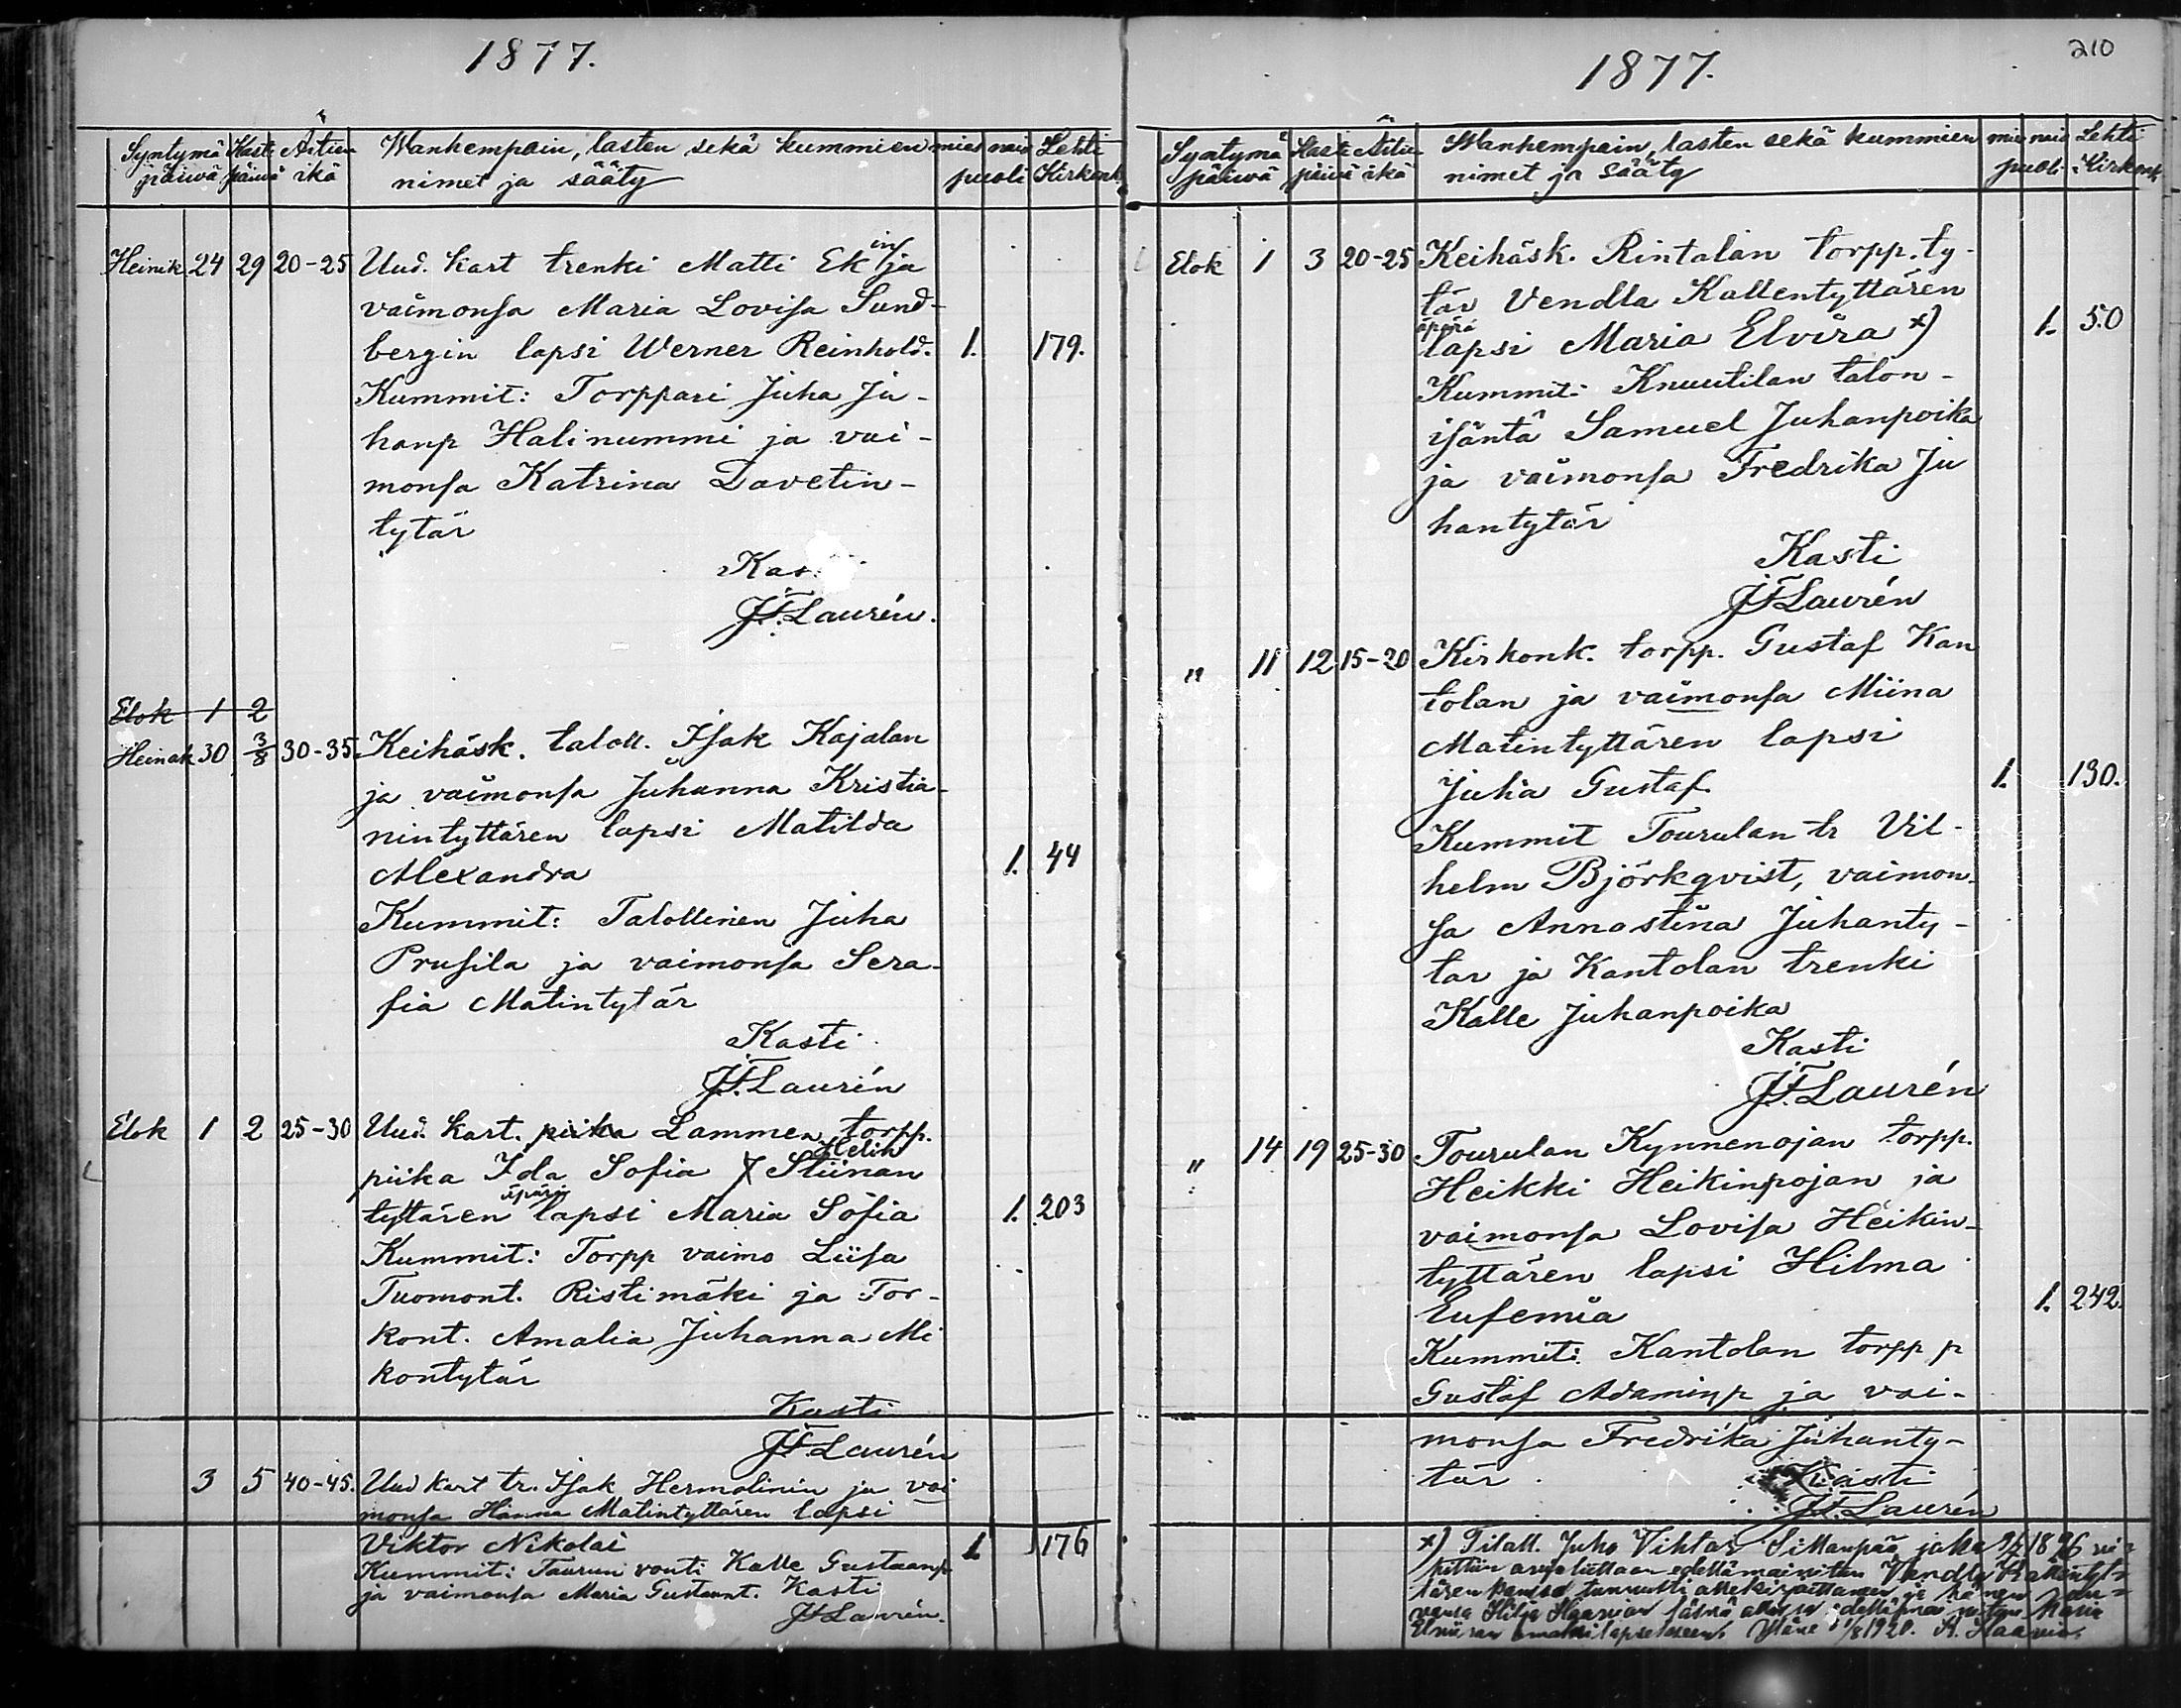 1877.
Syntymä Kasti Äitien Wanhempain, lasten sekä kummien mies nais Lehti
päivä päivä ikä nimet ja sääty puoli Kirkonk.
Heinäk. 24 29 20-25 Uud. kart trenki Matti Ekin ja
vaimonsa Maria Lovisa Sund-
bergin lapsi Werner Reinhold. 1. 179.
Kummit: Torppari Juha Ju-
hanp Halinummi ja vai-
monsa Katrina Davetin-
tytär
Kas
JF. Laurén.
Elok 1 2
Heinäk 30 3/8 30-35. Keihäsk. taloll. Isak Kajalan
ja vaimonsa Juhanna Kristia-
nintyttären lapsi Matilda
Alexandra 1. 44
Kummit: Talollinen Juha
Prusila ja vaimonsa Sera-
fia Matintytär
Kasti
JF. Laurén
Elok 1 2 25-30 Uud. kart. piika Lammen torpp.
piika Ida Sofia Helin Stiinan
tyttären äpärä lapsi Maria Sofia 1. 203
Kummit: Torpp vaimo Liisa
Tuomont. Ristimäki ja Tor-
kont. Amalia Juhanna Mi
kontytär
Kasti
JF. Laurén
3 5 40-45. Uud kart tr. Isak Hermalinin ja vai
monsa Hanna Matintyttären lapsi
Viktor Nikolai 1. 176
Kummit: Taurun vouti Kalle Gustaanp
ja vaimonsa Maria Gustaant. Kasti
JF Laurén.
210
1877.
Syntymä Kasti Äitien Wanhempain, lasten sekä kummien mies nais Lehti
päivä päivä ikä nimet ja sääty puoli Kirkonk.
Elok 1 3 20-25 Keihäsk. Rintalan torpp. ty-
tär Vendla Kallentyttären
äpärä lapsi Maria Elvira *) 1. 50
Kummit: Knuutilan talon-
isäntä Samuel Juhanpoika
ja vaimonsa Fredrika Ju
hantytär
Kasti
JF Laurén
" 11 12 15-20 Kirkonk. torpp. Gustaf Kan
tolan ja vaimonsa Miina
Matintyttären lapsi
Juha Gustaf. 1. 130.
Kummit Tourulan tr Vil-
helm Björkqvist, vaimon-
sa Annastina Juhanty-
tär ja Kantolan trenki
Kalle Juhanpoika
Kasti
JF. Laurén
" 14 19 25-30 Tourulan Kynnenojan torpp.
Heikki Heikinpojan ja
vaimonsa Lovisa Heikin-
tyttären lapsi Hilma
Eufemia 1. 242.
Kummit: Kantolan torpp p
Gustaf Adaminp ja vai-
monsa Fredrika Juhanty-
tär
Kasti
JF. Laurén
*) Tilall. Juho Vihtor Sillanpää, joka 1896 vi-
hittiin avioliittoon edellämainitun Vendla Kallentyt-
tären kanssa, tunnusti allekirjoittaneen ja hänen
vansa Hilja Haavion läsnä ollessa edellämainitun Maria
Elviiran omaksi lapsekseen. Yläne /8 1920. A. Haavio.